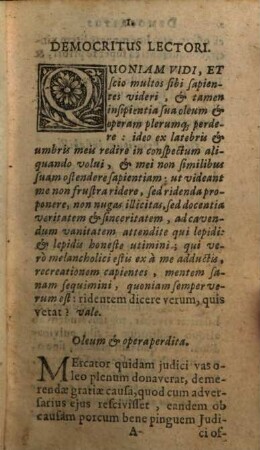 DEMOCRITUS LECTORI.
QUONIAM VIDI, ET
scio multos sibi sapien-
tes videri, & tamen
insipientia sua oleum &
operam plerumq; perde-
re: ideo ex latebris &
umbris meis redire in conspectum ali-
quando volui, & mei non similibus
suam ostendere sapientiam: ut videant
me non frustra ridere, sed ridenda pro-
ponere, non nugas illicitas, sed docentia
veritatem & sinceritatem, ad caven-
dum vanitatem attendite qui lepidi:
& lepidis honeste utimini; qui ve-
rò melancholici estis ex à me adductis,
recreationem capientes, mentem sa-
nam sequimini, quoniam semper ve-
rum est: ridentem dicere verum, quis
vetat? vale.
Oleum & opera perdita.
Mercator quidam judici vas o-
leo plenum donaverat, deme-
rendæ gratiæ causa, quod cum adver-
sarius ejus rescivisset, eandem ob
causam porcum bene pinguem Judi-
A
ci of-